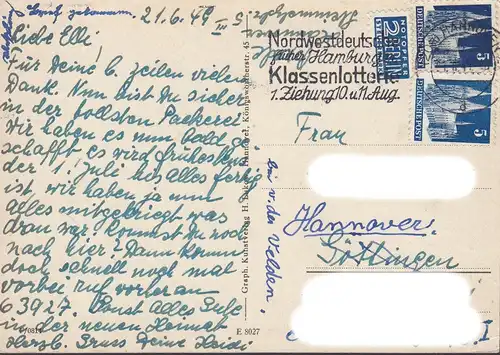 21.6.49
Liebe Elli!
Für Deine l. Zeilen vielen
Dank. Nun bist Du sicher
in der tollsten Packerei
wir haben es nun bald ge-
schafft es wird frühestens
der 1. Juli bis alles fertig
ist. wir haben ja nun
alles mitgekriegt was
dran war. Kommst Du noch
nach hier? Dann komm
doch schnell noch mal
vorbei ruf vorher an
63927. Sonst alles Gute
in der neuen Heimat
Herzl. Gruss Deine Heidi
Graph. Kunstverlag H. Hannover, Königswortherstr. 45
E 8027
Nordwestdeutsche
Hamburg
Klassenlotterie
1. Ziehung 10. u. 11. Aug.
NOTOPFER
2
BERLIN
STEUERMARKE
DEUTSCHE POST
5
DEUTSCHE POST
5
Frau
bei v. der Velden
Hannover
Göttingen